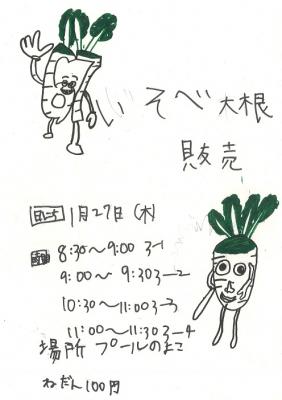 いそべ大根
販売
日にち 1月27日(木)
時間 8:30～9:00 3-1
9:00～ 9:30 3-2
10:30～11:00 3-3
11:00～11:30 3-4
場所 プールのよこ
ねだん100円